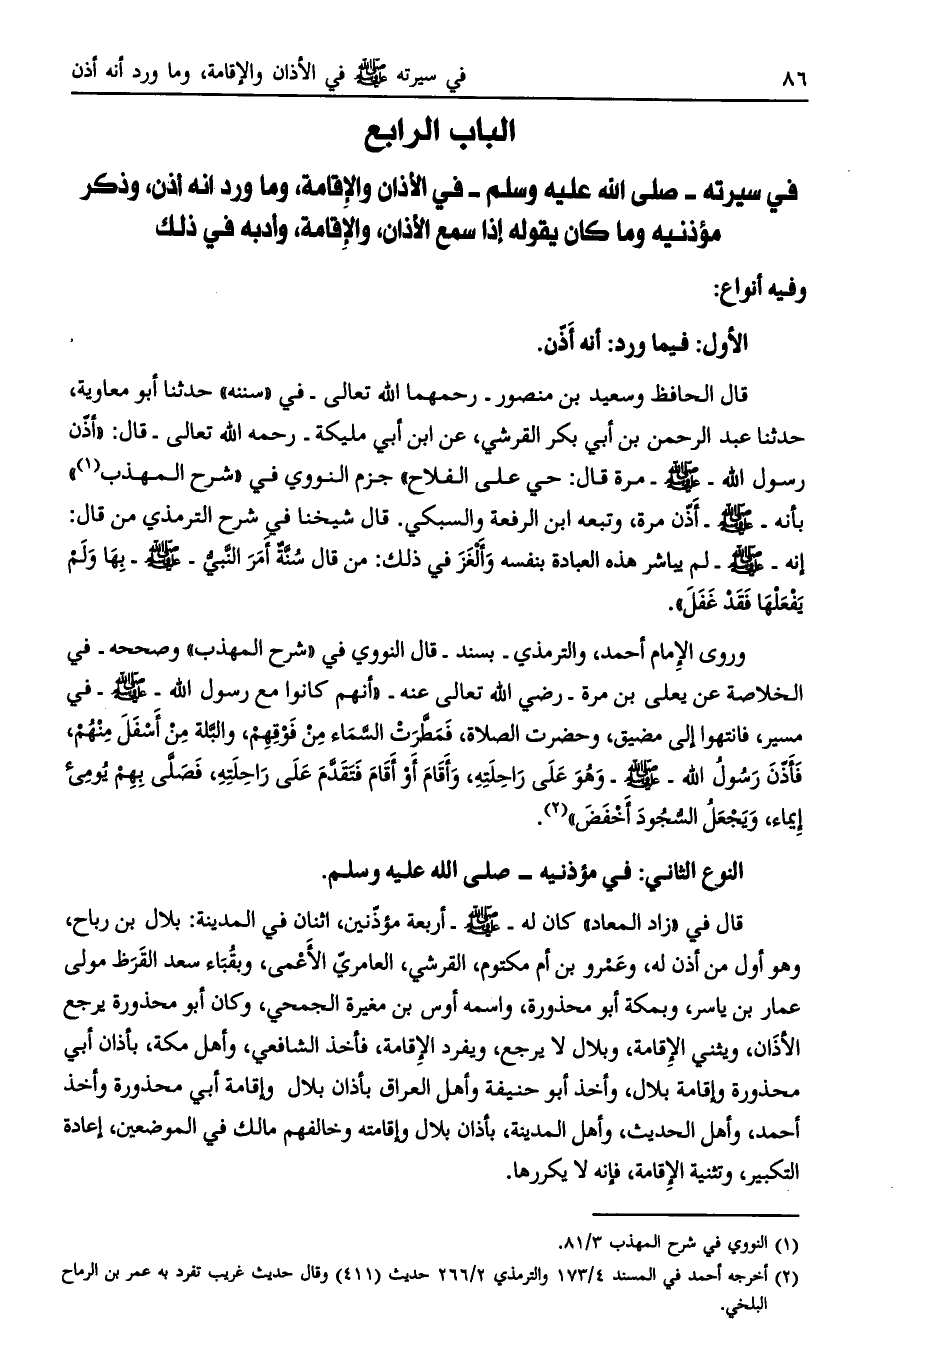 ٨٦ في سيرته ﷺ في الأذان والإقامة، وما ورد أنه أذن
الباب الرابع
في سيرته ـ صلى الله عليه وسلم ـ في الأذان والإقامة، وما ورد انه أذن، وذكر
مؤذنيه وما كان يقوله إذا سمع الأذان، والإقامة، وأدبه في ذلك
وفيه أنواع:
الأول: فيما ورد: أنه أَذّن.
قال الحافظ وسعيد بن منصور ـ رحمهما الله تعالى ـ في «سننه» حدثنا أبو معاوية،
حدثنا عبد الرحمن بن أبي بكر القرشي، عن ابن أبي مليكة ـ رحمه الله تعالى ـ قال: «أذّن
رسول الله ـ ﷺ ـ مرة قال: حي على الفلاح» جزم النووي في «شرح المهذب(١)»
بأنه ـ ﷺ ـ أَذّن مرة، وتبعه ابن الرفعة والسبكي. قال شيخنا في شرح الترمذي من قال:
إنه ـ ﷺ ـ لم يباشر هذه العبادة بنفسه وَأَلْغَزَ في ذلك: من قال سُنَّةٌ أَمَرَ النَّبيُّ ـ ﷺ ـ بِهَا وَلَمْ
يَفْعَلْهَا فَقَدْ غَفَلَ».
وروى الإمام أحمد، والترمذي ـ بسند ـ قال النووي في «شرح المهذب» وصححه ـ في
الخلاصة عن يعلى بن مرة ـ رضي الله تعالى عنه ـ «أنهم كانوا مع رسول الله ـ ﷺ ـ في
مسير، فانتهوا إلى مضيق، وحضرت الصلاة، فَمَطَّرَتْ السَّمَاء مِنْ فَوْقِهِمْ، والبَّلة مِنْ أَسْفَلَ مِنْهُمْ،
فَأَذَّنَ رَسُولُ الله ـ ﷺ ـ وَهُوَ عَلَى رَاحِلَتِهِ، وَأَقَامَ أَوْ أَقَامَ فَتَقَدَّمَ عَلَى رَاحِلَتِهِ، فَصَلَّى بِهِمْ يُومِئ
إيماء، وَيَجْعَلُ السُّجُودَ أَخْفَضَ»(٢).
النوع الثاني: في مؤذنيه ـ صلى الله عليه وسلم.
قال في «زاد المعاد» كان له ـ ﷺ ـ أربعة مؤذّنين، اثنان في المدينة: بلال بن رباح،
وهو أول من أذن له، وعَمْرو بن أم مكتوم، القرشي، العامريّ الأَعْمى، وبقُبَاء سعد القَرَظ مولى
عمار بن ياسر، وبمكة أبو محذورة، واسمه أوس بن مغيرة الجمحي، وكان أبو محذورة يرجع
الأذَان، ويثني الإقامة، وبلال لا يرجع، ويفرد الإقامة، فأخذ الشافعي، وأهل مكة، بأذان أبي
محذورة وإقامة بلال، وأخذ أبو حنيفة وأهل العراق بأذان بلال وإقامة أبي محذورة وأخذ
أحمد، وأهل الحديث، وأهل المدينة، بأذان بلال وإقامته وخالفهم مالك في الموضعين، إعادة
التكبير، وتثنية الإقامة، فإنه لا يكررها.
(١) النووي في شرح المهذب ٨١/٣.
(٢) أخرجه أحمد في المسند ١٧٣/٤ والترمذي ٢٦٦/٢ حديث (٤١١) وقال حديث غريب تفرد به عمر بن الرماح
البلخي.